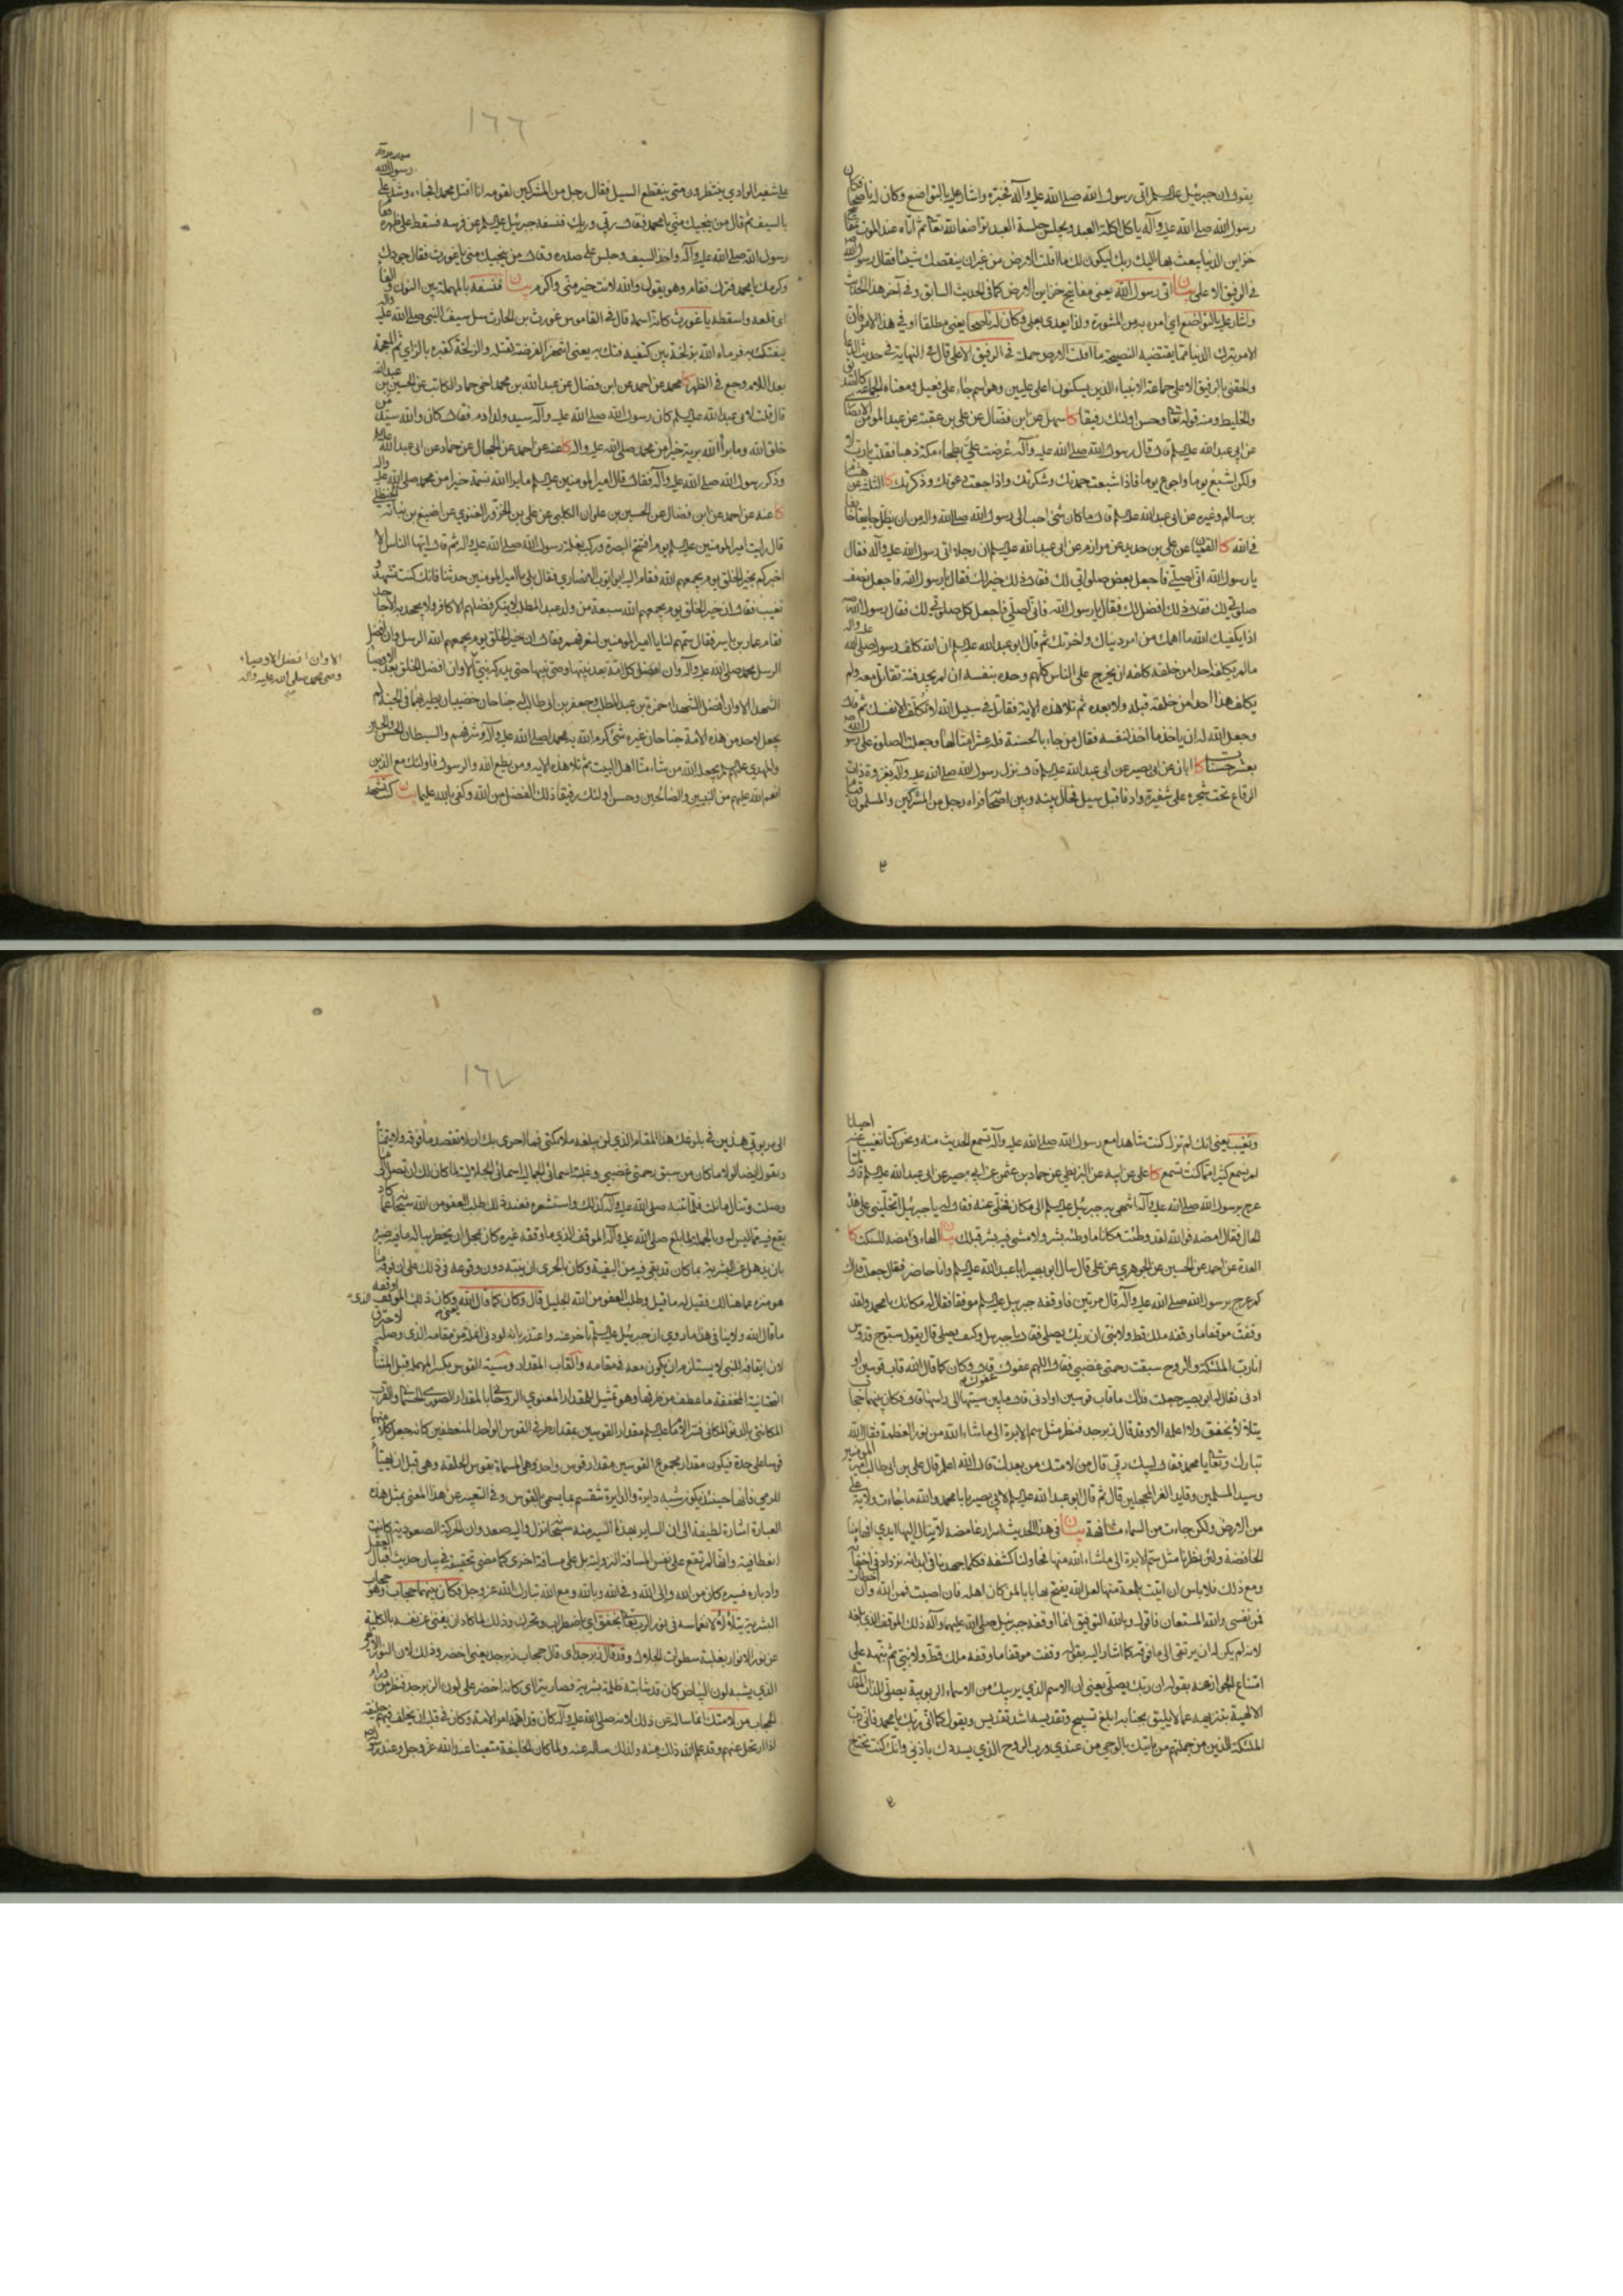 يقول ان جبرئيل عليه السلم اتى رسول الله صلى الله عليه وآله فخيره واشار عليه بالتواضع وكان له ناصحا فكان
رسول الله صلى الله عليه وآله ياكل اكلة العبد ويجلس جلسة العبد تواضعا لله تعا ثم اتاه عند الموت بمفاتيح
خزاين الدنيا يبعث بها اليك ربك ليكون لك ما اقلت الارض من غير ان ينقصك شيئا فقال رسول الله
في الرفيق الاعلى بيان اتى رسول الله يعني مفاتيح خزاين الارض كما في الحديث السابق وفي آخر هذا الحديث
واشار عليه بالتواضع اي امره به من المشورة ولذا يعدى بعلى وكان له ناصحا يعني مطلقا او في هذا الامر فان
الامر بترك الدنيا مما يقتضيه النصيحة ما اقلت الارض حملت في الرفيق الاعلى قال في النهاية في حديث الدعا
والحقني بالرفيق الاعلى جماعة الانبياء الذين يسكنون اعلى عليين وهو اسم جاء على فعيل ومعناه الجماعة
والخليط ومنه قوله تعا وحسن اولئك رفيقا كا سهل عن ابن فضال عن علي بن عقبة عن عبد المؤمن الانصاري
عن ابي عبد الله عليه السلم قال قال رسول الله صلى الله عليه وآله عرضت علي بطحاء مكة ذهبا فقلت يا رب لا
ولكن اشبع يوما واجوع يوما فاذا شبعت حمدتك وشكرتك واذا جعت دعوتك وذكرتك كا الثلثة عن هشام
بن سالم وغيره عن ابي عبد الله عليه السلم قال ما كان شئ احب الى رسول الله صلى الله واله من ان يظل جايعا خائفا
في الله كا القميان عن علي بن حديد عن مرازم عن ابي عبد الله عليه السلم ان رجلا اتى رسول الله عليه وآله فقال
يا رسول الله اني اصلي فاجعل بعض صلواتي لك فقال ذلك خير لك فقال يا رسول الله فاجعل نصف
صلوتي لك فقال ذلك افضل لك فقال يا رسول الله فاني اصلي فاجعل كل صلوتي لك فقال رسول الله
اذا يكفيك الله ما اهمك من امر دنياك واخرتك ثم قال ابو عبد الله عليه السلم ان الله كلف رسوله صلى الله عليه واله
ما لم يكلفه احدا من خلقه كلفه ان يخرج على الناس كلهم وحده بنفسه ان لم يجد فئة تقاتل معه ولم
يكلف هذا احدا من خلقه قبله ولا بعده ثم تلا هذه الاية فقاتل في سبيل الله لا تكلف الا نفسك ثم قال
وجعل الله له ان ياخذ ما اخذ لنفسه فقال من جاء بالحسنة فله عشر امثالها وجعلت الصلوة على رسول الله
بعشر حسنات كا ابان عن ابي بصير عن ابي عبد الله عليه السلم قال نزل رسول الله صلى الله عليه وآله بغزوة ذات
الرقاع تحت شجرة على شفير واد فاقبل سيل فحال بينه وبين اصحابه فراه رجل من المشركين والمسلمون قيام
١٦٦
على شفير الوادي ينتظرون متى ينقطع السيل فقال رجل من المشركين لقومه انا اقتل محمدا فجاء وشد على رسول الله
بالسيف ثم قال من ينجيك مني يا محمد فقال ربي وربك فنسفه جبرئيل عليه السلم عن فرسه فسقط على ظهره فقام
رسول الله صلى الله عليه وآله واخذ السيف وجلس على صدره وقال من ينجيك مني يا غورث فقال جودك
وكرمك يا محمد فتركه فقام وهو يقول والله لانت خير مني واكرم بيان فنسفه بالمهملة بين النون والفا
اي قلعه واسقطه يا غورث كانه اسمه قال في القاموس غورث بن الحارث سل سيف النبي صلى الله عليه واله
ليفتك به فرماه الله بزلخة بين كتفيه فتك به يعني انتهز الفرصة لقتله والزلخة كقبره بالزاي ثم المعجمة
بعد اللام وجع في الظهر كا محمد عن احمد عن ابن فضال عن عبد الله بن محمد اخي حماد الكاتب عن الحسين بن عبد الله
قال قلت لابي عبد الله عليه السلم كان رسول الله صلى الله عليه وآله سيد ولد ادم فقال كان والله سيد من
خلق الله وما برأ الله برية خيرا من محمد صلى الله عليه واله كا عنه عن احمد عن الحجال عن حماد عن ابي عبد الله عليه
وذكر رسول الله صلى الله عليه وآله فقال قال امير المؤمنين عليه السلم ما برا الله نسمة خيرا من محمد صلى الله عليه واله
كا عنه عن احمد عن ابن فضال عن الحسين بن علوان الكلبي عن علي بن الحزور الغنوي عن اصبغ بن نباتة الحنظلي
قال رايت امير المؤمنين عليه السلم يوم افتتح البصرة وركب بغلة رسول الله صلى الله عليه واله ثم قال ايها الناس الا
اخبركم بخير الخلق يوم يجمعهم الله فقام اليه ابو ايوب الانصاري فقال بلى يا امير المؤمنين حدثنا فانك كنت تشهد و
نغيب فقال ان خير الخلق يوم يجمعهم الله سبعة من ولد عبد المطلب لا ينكر فضلهم الا كافر ولا يجحد به الا جاحد
فقام عمار بن ياسر فقال سمهم لنا يا امير المؤمنين لنعرفهم فقال ان خير الخلق يوم يجمعهم الله الرسل وان افضل
الرسل محمد صلى الله عليه وآله وان افضل كل امة بعد نبيها وصي نبيها حتى يدركه نبي الا وان افضل الخلق بعد الاوصيا
الا وان افضل الاوصياء
وصي محمد صلى الله عليه واله
الشهدا الا وان افضل الشهدا حمزة بن عبد المطلب وجعفر بن ابي طالب له جناحان خضيبان يطير بهما في الجنة لم
يجعل لاحد من هذه الامة جناحان غيره شئ كرم الله به محمدا صلى الله عليه وآله وشرفه والسبطان الحسن والحسين
والمهدي عليهم السلم يجعله الله من شاء منا اهل البيت ثم تلا هذه الاية ومن يطع الله والرسول فاولئك مع الذين
انعم الله عليهم من النبيين والصالحين وحسن اولئك رفيقا ذلك الفضل من الله وكفى بالله عليما بيان كنت تشهد
ونغيب يعني انك لم تزل كنت شاهدا مع رسول الله صلى الله عليه وآله تسمع الحديث منه ونحن كنا نغيب عنه احيانا
لم نسمع كثيرا مما كنت تسمع كا علي عن ابيه عن البزنطي عن حماد بن عثمن عن ابي بصير عن ابي عبد الله عليه السلم قال لما
عرج برسول الله صلى الله عليه وآله انتهى به جبرئيل عليه السلم الى مكان فخلى عنه فقال له يا جبرئيل اتخليني على هذه
الحال فقال امضه فوالله لقد وطئت مكانا ما وطئه بشر ولا مشى فيه بشر قبلك بيان الهاء في امضه للسكت كا
العدة عن احمد عن الحسين عن الجوهري عن علي قال سال ابو بصير ابا عبد الله عليه السلم وانا حاضر فقال جعلت فداك
كم عرج برسول الله صلى الله عليه وآله قال مرتين فاوقفه جبريل عليه السلم موقفا فقال له مكانك يا محمد ولقد
وقفت موقفا ما وقفه ملك قط ولا نبي ان ربك يصلي فقال يا جبريل وكيف يصلي قال يقول سبوح قدوس
انا رب الملئكة والروح سبقت رحمتي غضبي فقال اللهم عفوك عفوك قال وكان كما قال الله قاب قوسين او
ادنى فقال له ابو بصير جعلت فداك ما قاب قوسين او ادنى قال ما بين سيتها الى راسها قال فكان بينهما حجاب
يتلالا يخفق ولا اعلمه الا وقد قال زبرجد فنظر في مثل سم الابرة الى ما شاء الله من نور العظمة فقال الله
تبارك وتعا يا محمد فقال لبيك ربي قال من لامتك من بعدك قال الله اعلم قال علي بن ابي طالب امير المؤمنين
وسيد المسلمين وقايد الغر المحجلين قال ثم قال ابو عبد الله عليه السلم لابي بصير يا با محمد والله ما جاءت ولاية علي
من الارض ولكن جاءت من السماء مشافهة بيان في هذا الحديث اسرار غامضة لا ينال اليها ايدي افهامنا
الخافضة ولئن نظرنا مثل سم الابرة الى ما شاء الله منها فحاولنا كشفه فكلما جهدنا في ابدائه نزداد في اخفائه
ومع ذلك فلا باس ان اتيت بلمعة منها لعل الله يفتح بها بابا لمن كان اهله فان اصبت فمن الله وان اخطات
فمن نفسي والله المستعان فاقول وبالله التوفيق انما اوقفه جبرئيل صلى الله عليهما وآله ذلك الموقف الذي بلغه
لانه لم يكن له ان يرتقى الى ما فوقه كما اشار اليه بقوله وقفت موقفا ما وقفه ملك قط ولا نبي ثم نبهه على
امتناع الجواز عنه بقوله ان ربك يصلي يعني ان الاسم الذي يربيك من الاسماء الربوبية يصلي للذات المقدسة
الالهية بتنزيهه عما لا يليق بجنابه ابلغ تسبيح وتقديسه اشد تقديس ويقول كما اني ربك يا محمد فاني رب
الملئكة الذين من جملتهم من ياتيك بالوحي من عندي ورب الروح الذي يسددك باذني وانك كنت تحتاج
١٦٧
الى مربوبي هذين في بلوغك هذا المقام الذي لن يبلغه ملائكتي فما احرى بك ان لا تقصد ما فوقه ولا تتمناه
ويقول ايضا لولا ما كان من سبق رحمتي غضبي وغلبة اسمائي الجمالية اسمائي الجلالية لما كان لك ان تصل الى ما
وصلت وتنال ما نلت فلما تنبه صلى الله عليه وآله لذلك واستشعره فعند ذلك طلب العفو من الله سبحانه عما كاد
يقع فيه مما ليس له وبالجملة لما بلغ صلى الله عليه وآله الموقف الذي ما وقفه غيره كان محل ان يخطر بباله ما فيه ضيره
بان يذهل عن البشرية بما كان قد بقي فيه من البقية وكان بالحرى ان ينبه دون وقوعه في ذلك على ان فوقه ما
هو منزه عما هنالك فقيل له ما قيل وطلب العفو من الله الجليل قال وكان كما قال الله يعني به وكان ذلك الموقف الذي اوقفه
ما قال الله ولا ينافي هذا ما روي ان جبرئيل عليه السلم تاخر عنه واعتذر بانه لو دنى انملة من مقامه الذي وصل به لاحترق
لان ايقافه للنبي لا يستلزم ان يكون معه في مقامه والقاب المقدار وسية القوس بكسر المهملة قبل المثناة
التحتانية المخففة ما عطف من طرفها وهو تمثيل للمقدار المعنوي الروحاني بالمقدار الصوري الجسماني والقرب
المكانتي بالدنو المكاني فسر الامام عليه السلم مقدار القوسين بمقدار طرفي القوس الواحد المنعطفين كانه جعل كلا منهما
قوسا على حدة فيكون مقدار مجموع القوسين مقدار قوس واحد وهي المسماة بقوس الحلقة وهي قبل ان تهيأ
للرمي فانها حينئذ يكون شبه دايرة والدايرة تنقسم بما يسمى بالقوس وفي التعبير عن هذا المعنى بمثل هذه
العبارة اشارة لطيفة الى ان الساير بهذا السير منه سبحانه نزل واليه صعد وان الحركة الصعودية كانت
انعطافية وانها لم تقع على نفس المسافة النزولية بل على مسافة اخرى كما مضى تحقيقه في بيان حديث اقبال العقل
وادباره فسيره كان من الله والى الله وفي الله وبالله ومع الله تبارك الله عز وجل فكان بينهما حجاب وهو حجاب
البشرية يتلالا لانغماسه في نور الرب تعا يخفق اي باضطراب وتحرك وذلك لما كاد ان يفنى عن نفسه بالكلية
عن نور الانوار بغلبة سطوات الجلال وقد قال زبرجد اي قال حجاب زبرجد يعني اخضر وذلك لان النور الالهي
الذي يشبه لون البياض كان قد شابته ظلمة بشرية فصار يتراءى كانه اخضر على لون الزبرجد فنظر من وراء
الحجاب من لامتك انما ساله عن ذلك لانه صلى الله عليه وآله كان قد اهمه امر الامة وكان في قلبه ان يخلف فيهم خليفة
اذا ارتحل عنهم وقد علم الله ذلك منه ولذلك ساله عنه ولما كان الخليفة متعينا عند الله عز وجل وعند رسوله